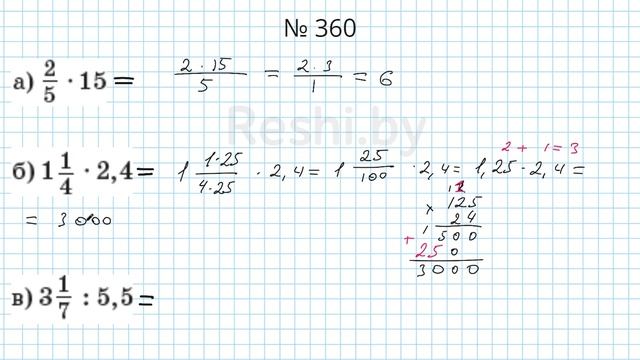 № 360
а) 2/5 · 15 = 2 · 15/5 = 2 · 3/1 = 6
Reshi.by
2 + 1 = 3
б) 1 1/4 · 2,4 = 1 1·25/4·25 · 2,4 = 1 25/100 · 2,4 = 1,25 · 2,4 =
× 125
24
= 3
1 500
+ 250
3000
в) 3 1/7 : 5,5 =